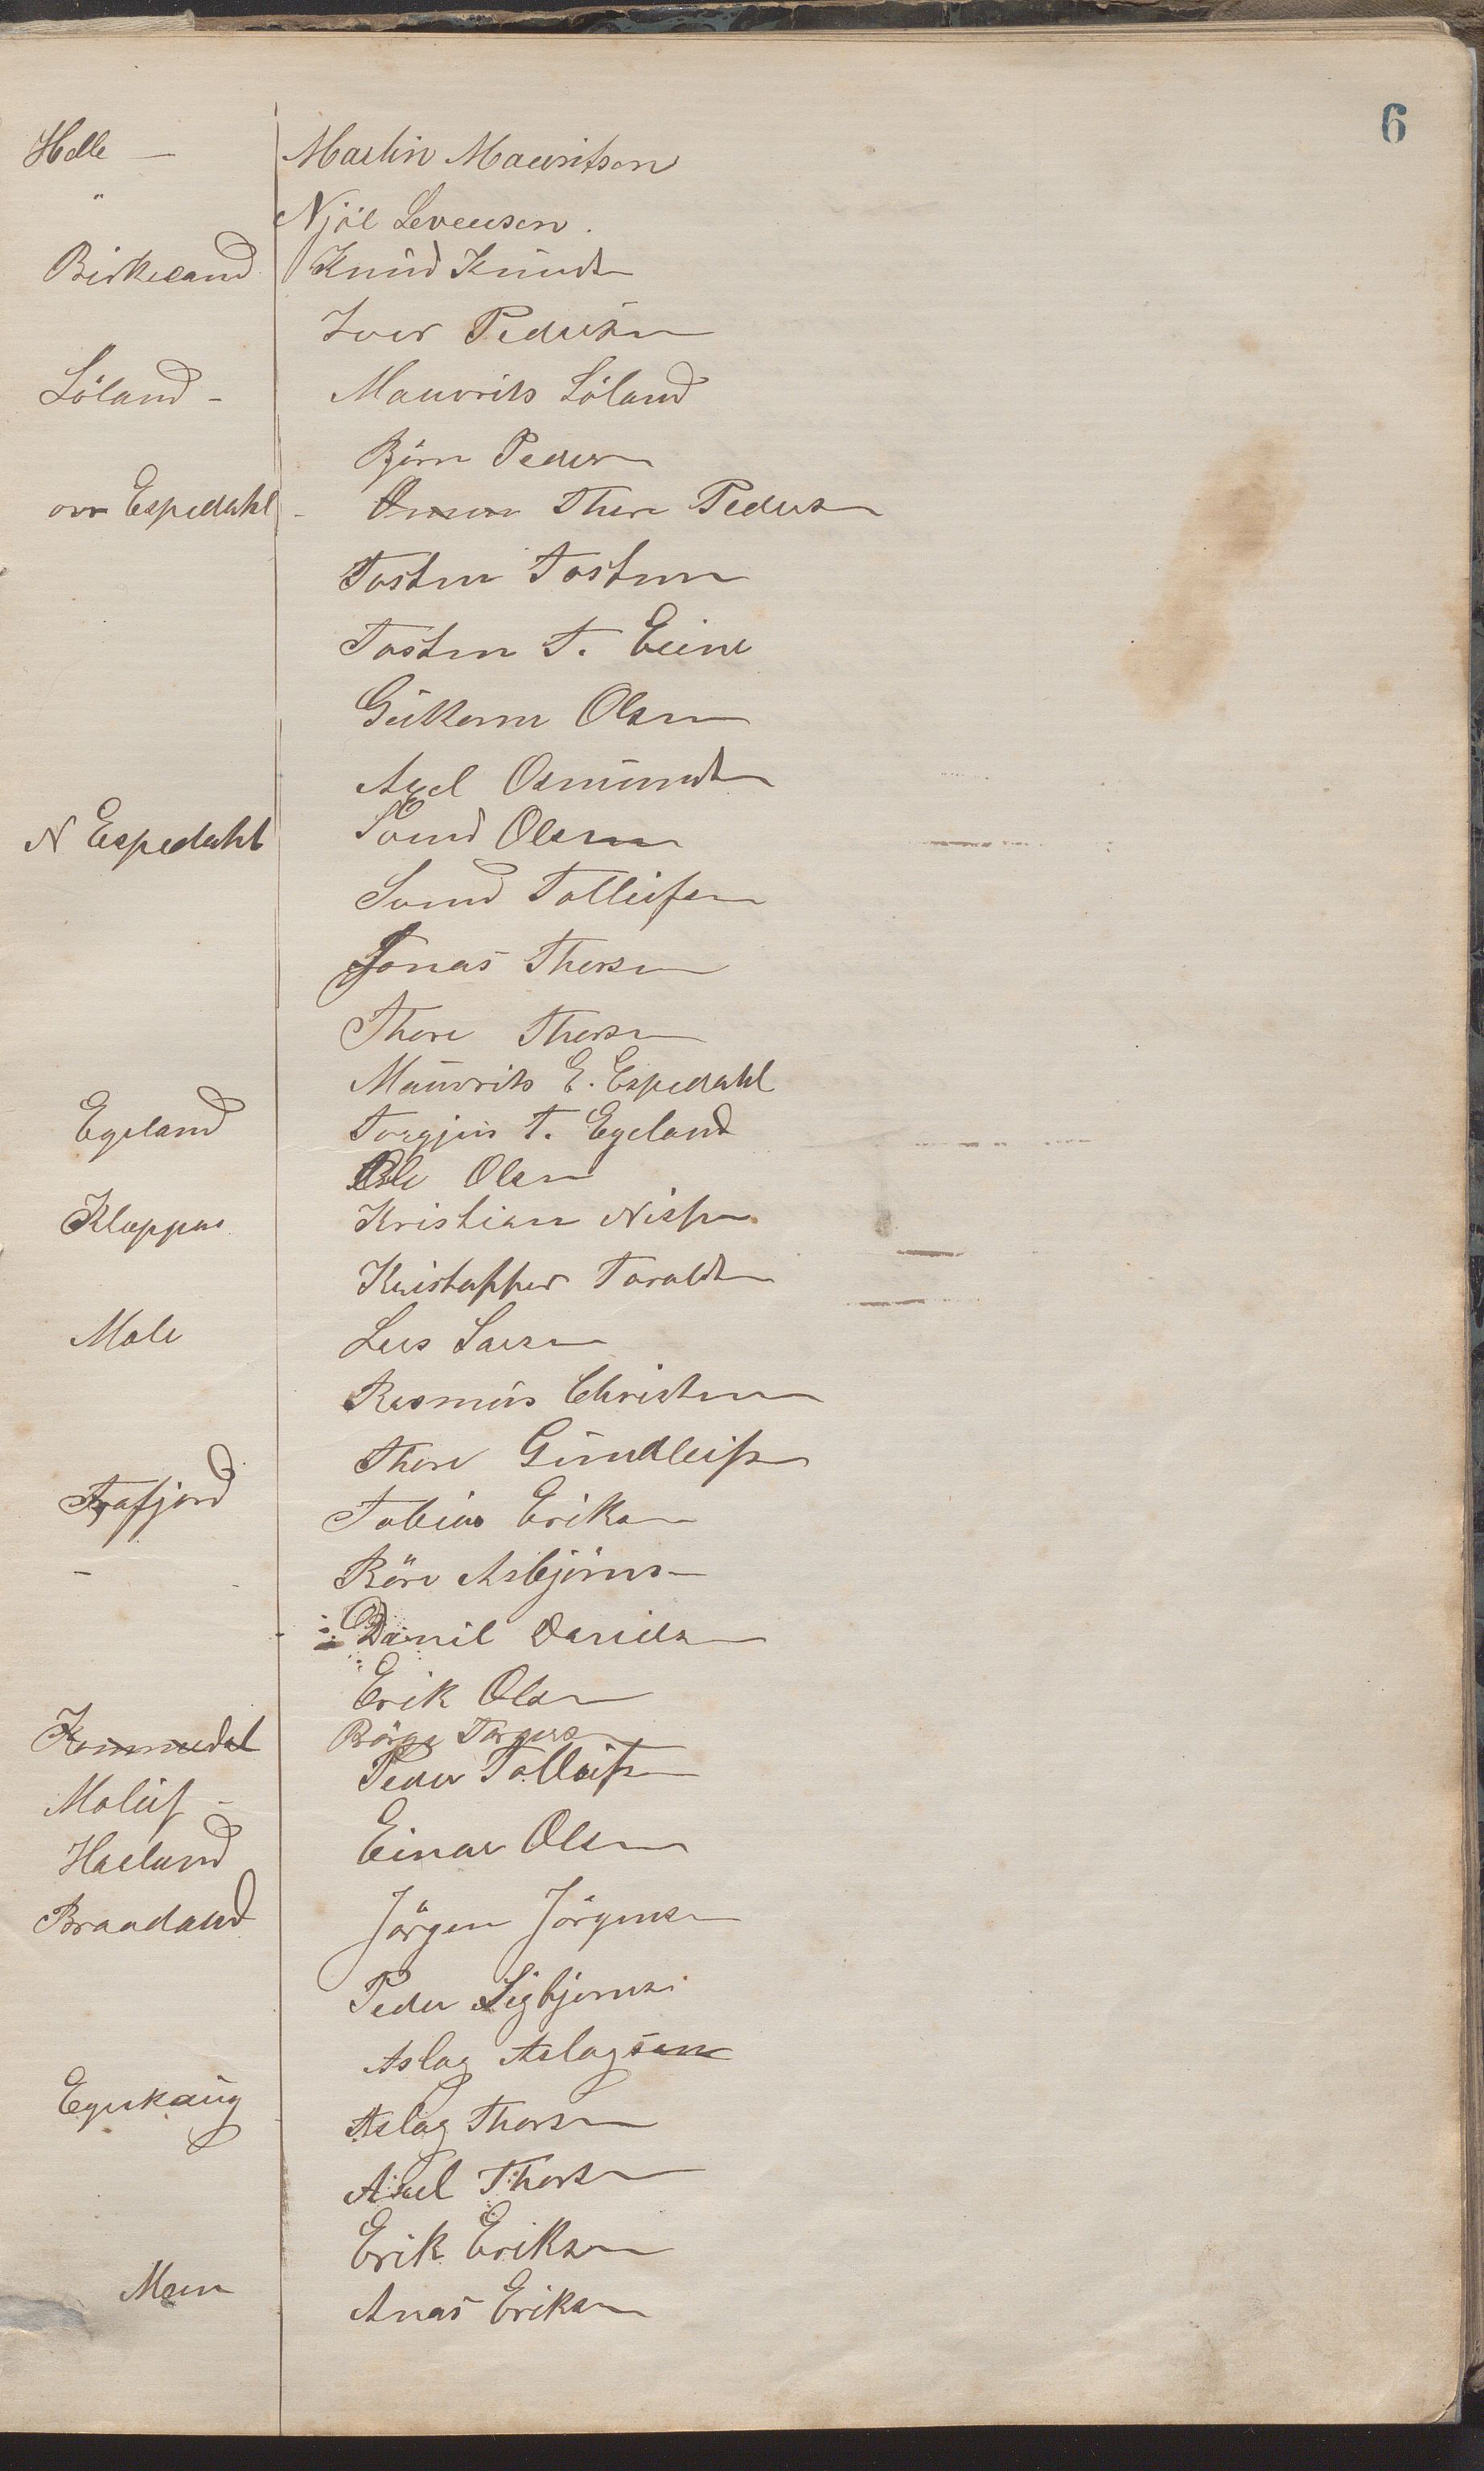 6
Helle — Martin Mauritsen
" Njæl Sevensen.
Birkeland Knud Knuds
Iver Peders
Löland - Mauvrits Löland
Björn Peders
ovr Espedahl - Omun Thore Peders
Tosten Tosten
Tosten T. Eiene
Guttorm Olsen
Axel Osmunds
N Espedahl Svend Olsen
Svend Tolleifsen
Jonas Thorsen
Thore Thorsen
Mauvrits E. Espedahl
Egeland Torgjus T. Egeland
Ole Olsen
Kloppus Kristian Niss
Kristoffer Toralds
Mole Lars Larsen
Rasmus Christens
Thore Gundleifs
Frafjord Tobias Eriks
- Böre Asbjörns
Daniel Davids
Erik Olsen
Kommedal Börge Torgers
Moleif - Peder Tolleifs
Haeland Einar Olsen
Braadland Jörgen Jörgens
Peder Sigbjorns
Aslag Aslagsen
Egeskaug Aslag Thorsen
Axel Thorsen
Erik Eriksen
Maen Anas Eriksen